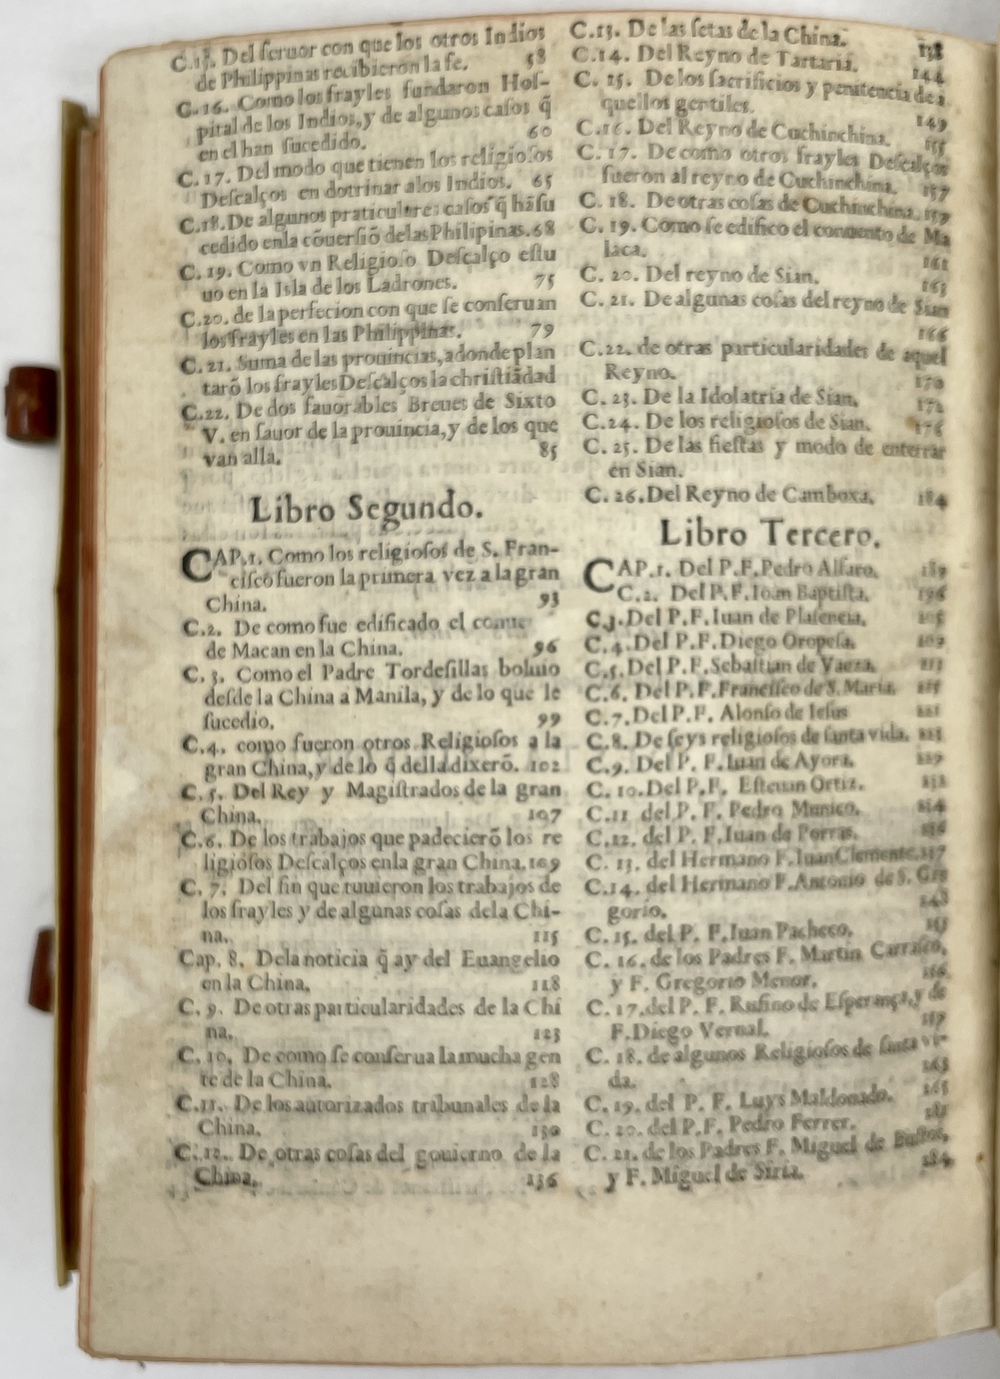 C.15. Del feruor con que los otros Indios
de Philippinas recibieron la fe. 58
C.16. Como los frayles fundaron Hoſ-
pital de los Indios, y de algunos caſos q̃
en el han ſucedido. 60
C.17. Del modo que tienen los religioſos
Deſcalços en dotrinar alos Indios. 65
C.18. De algunos praticulares caſos q̃ hã ſu
cedido enla cõuerſiõ delas Philipinas. 68
C.19. Como vn Religioſo Deſcalço eſtu
uo en la Isla de los Ladrones. 75
C.20. de la perfecion con que ſe conſeruan
los frayles en las Philippinas. 79
C.21. Suma de las prouincias, adonde plan
tarõ los frayles Deſcalços la chriſtiãdad
C.22. De dos fauorables Breues de Sixto
V. en fauor de la prouincia, y de los que
van alla. 85
Libro Segundo.
CAP.1. Como los religioſos de S. Fran-
ciſco fueron la primera vez a la gran
China. 93
C.2. De como fue edificado el conue
de Macan en la China. 96
C.3. Como el Padre Tordeſillas boluio
deſde la China a Manila, y de lo que le
ſucedio. 99
C.4. como fueron otros Religioſos a la
gran China, y de lo q̃ della dixerõ. 102
C.5. Del Rey y Magiſtrados de la gran
China. 107
C.6. De los trabajos que padecierõ los re
ligioſos Deſcalços enla gran China. 109
C.7. Del fin que tuuieron los trabajos de
los frayles y de algunas coſas dela Chi-
na. 115
Cap. 8. Dela noticia q̃ ay del Euangelio
en la China. 118
C.9. De otras particularidades de la Chi
na. 123
C.10. De como ſe conſerua la mucha gen
te de la China. 128
C.11. De los autorizados tribunales de la
China. 130
C.12. De otras coſas del gouierno de la
China. 136
C.13. De las ſetas de la China. 138
C.14. Del Reyno de Tartaria. 144
C.15. De los ſacrificios y penitencia de a
quellos gentiles. 149
C.16. Del Reyno de Cuchinchina. 155
C.17. De como otros frayles Deſcalços
fueron al reyno de Cuchinchina. 157
C.18. De otras coſas de Cuchinchina. 159
C.19. Como ſe edifico el conuento de Ma
laca. 161
C.20. Del reyno de Sian. 163
C.21. De algunas coſas del reyno de Sian
166
C.22. de otras particularidades de aquel
Reyno. 170
C.23. De la Idolatria de Sian. 172
C.24. De los religioſos de Sian. 176
C.25. De las fieſtas y modo de enterrar
en Sian.
C.26. Del Reyno de Camboxa. 184
Libro Tercero.
CAP.1. Del P.F. Pedro Alfaro. 189
C.2. Del P.F. Ioan Baptiſta. 196
C.3. Del P.F. Iuan de Plaſencia.
C.4. Del P.F. Diego Oropeſa.
C.5. Del P.F. Sebaſtian de Vaeza.
C.6. Del P.F. Franciſco de S. Maria.
C.7. Del P.F. Alonſo de Ieſus
C.8. De ſeys religioſos de ſanta vida.
C.9. Del P. F. Iuan de Ayora.
C.10. Del P.F. Eſteuan Ortiz.
C.11 del P. F. Pedro Munico.
C.12. del P. F. Iuan de Porras.
C.13. del Hermano F. Iuan Clemente.
C.14. del Hermano F. Antonio de S. Gre
gorio.
C.15. del P. F. Iuan Pacheco.
C.16. de los Padres F. Martin Carraſco,
y F. Gregorio Menor.
C.17. del P. F. Rufino de Eſperança, y de
F. Diego Vernal.
C.18. de algunos Religioſos de ſanta vi-
da.
C.19. del P. F. Luys Maldonado.
C.20. del P.F. Pedro Ferrer.
C.21. de los Padres F. Miguel de Buſtos,
y F. Miguel de Siria. 284